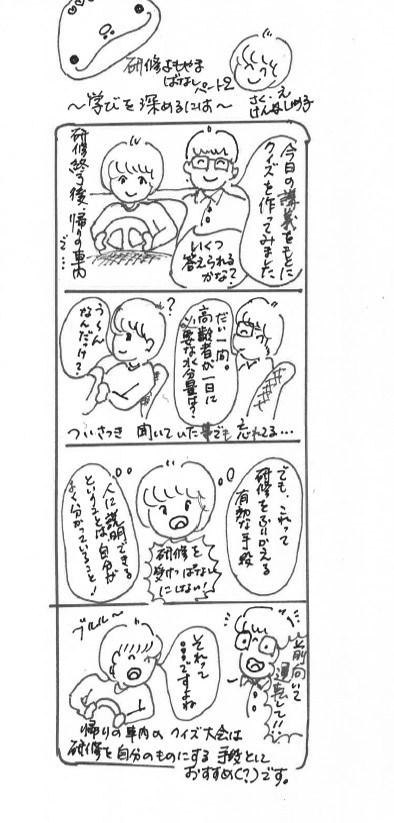 研修よもやま
ばなしパート2
～学びを深めるには～
さく・え
けんしゅう子
今日の講義をもとに
クイズを作ってみました
いくつ
答えられる
かな？
研修終了後、帰りの車内
で…
だい一問。
高齢者が一日に
必要な水分量は？
?
う～ん
なんだっけ？
ついさっき 聞いていた事でも 忘れてる…
でも、これって
研修をふりかえる
有効な手段
研修を
受けっぱなし
にしない！
人に説明できる
ということは自分が
よく分かっていること！
前向いて
運転して!!
それって
〇〇〇ですよね
ブルル～
帰りの車内の クイズ大会は
研修を自分のものにする 手段として
おすすめ(？)です。